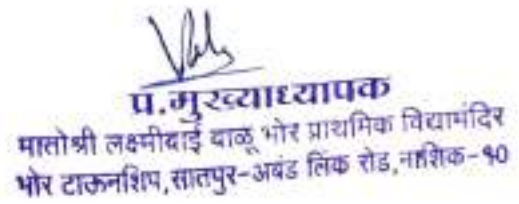 प्र.मुख्याध्यापक
मातोश्री लक्ष्मीबाई बाळू भोर प्राथमिक विद्यामंदिर
भोर टाऊनशिप,सातपुर-अबंड लिंक रोड,नाशिक-१०